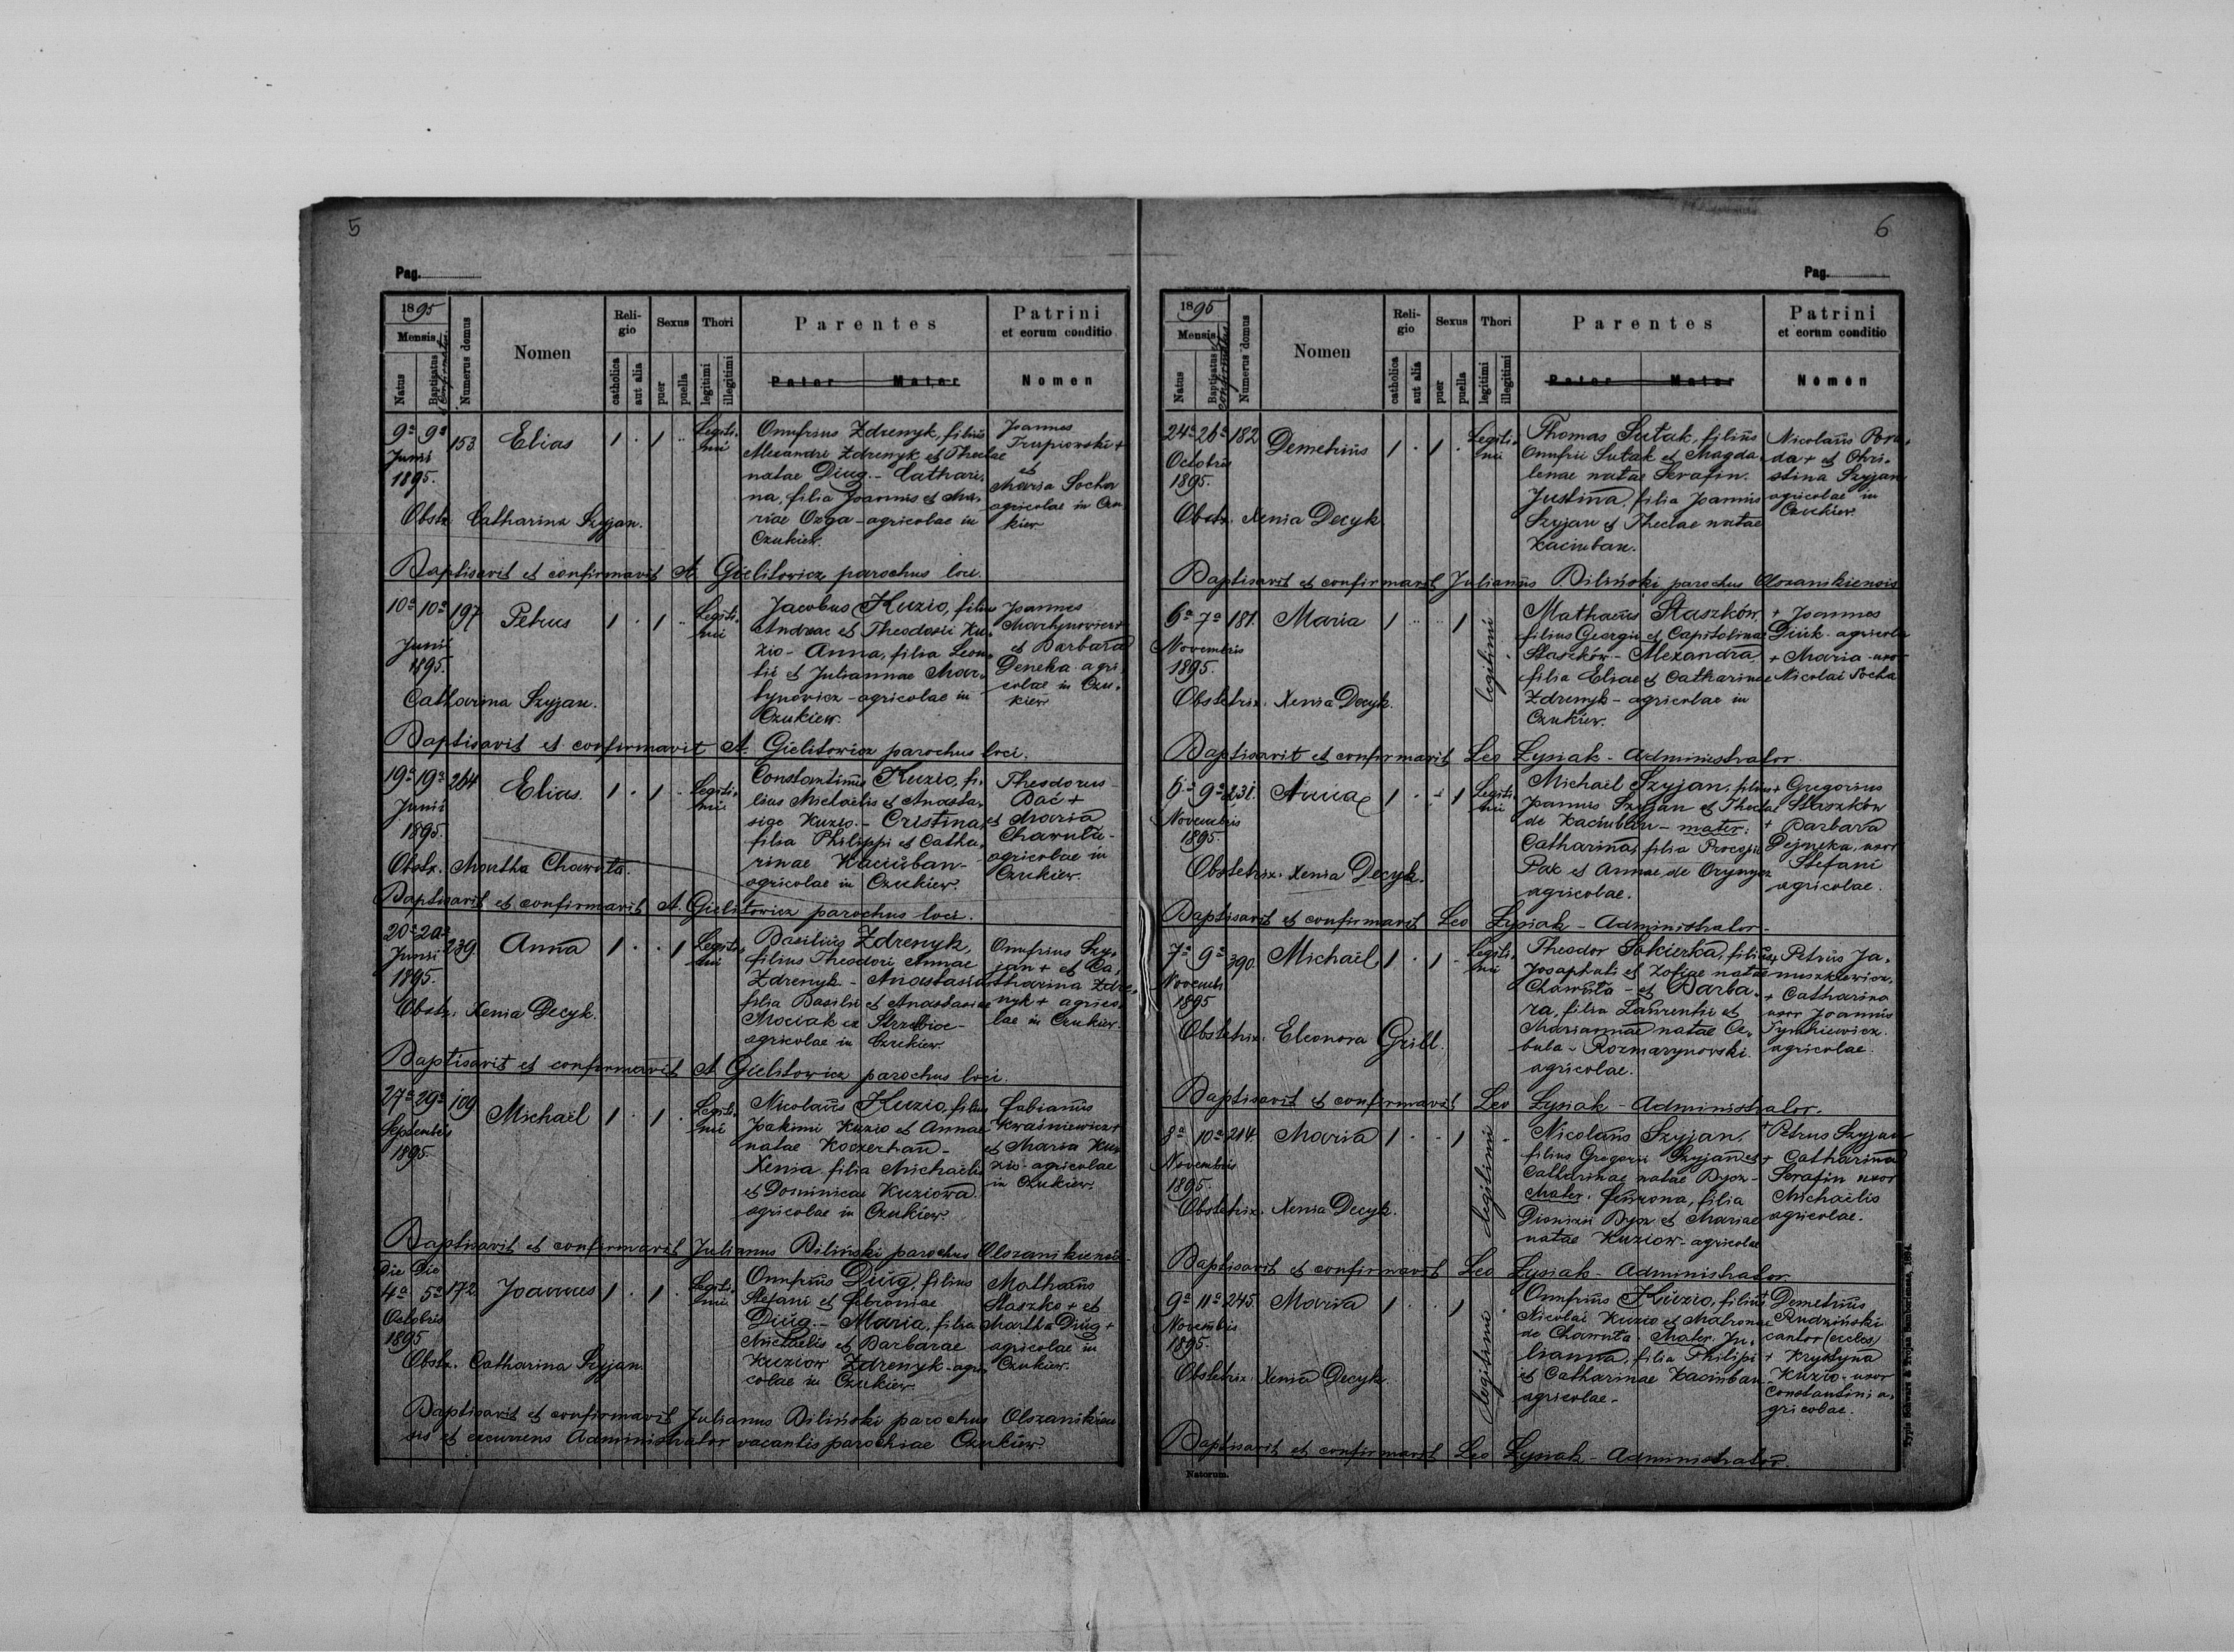 5
Pag.
1895
Mensis
Natus
Baptisatus et confirmatus
Numerus domus
Nomen
Religio
catholica
aut alia
Sexus
puer
puella
Thori
legitimi
illegitimi
Parentes
Pater Mater
Patrini
et eorum conditio
Nomen
9a 9a 153 Elias 1 . 1 .. Legiti-
mi
Junii
1895.
Obstr. Catharina Szyjan.
Onufrius Zdrenyk, filius
Alexandri Zdrenyk et Theclae
natae Diug. - Cathari-
na, filia Joannis et Ma-
riae Ozga - agricolae in
Czukiew.
Joannes
+
et
Maria Socha
agricolae in Czu
kiew
Baptisavit et confirmavit A Gielitowicz parochus loci.
10a 10a 197 Petrus 1 . 1 .. Legiti-
mi
Junii
1895.
Catharina Szyjan.
Jacobus Kuzio, filius
Andreae et Theodosii Ku-
zio - Anna, filia Leon-
tii et Juliannae Mar-
tynowicz - agricolae in
Czukiew.
Joannes
Martynowicz+
et Barbara
Deneka agri-
colae in Czu-
kiew
Baptisavit et confirmavit A. Gielitowicz parochus loci.
19a 19a 264 Elias. 1 . 1 .. Legiti-
mi
Junii
1895.
Obstr. Martha Chawuta.
Constantinus Kuzio, fi-
lius Michaelis et Anasta-
siae Kuzio. - Cristina,
filia Philippi et Catha-
rinae Kaciuban -
agricolae in Czukiew.
Theodorus
Bać +
et Maria
Chawuta -
agricolae in
Czukiew.
Baptisavit et confirmavit A. Gielitowicz parochus loci.
20a 20a 239. Anna 1 . . 1 Legiti-
mi
Junii
1895.
Obstr. Xenia Decyk.
Basilius Zdrenyk,
filius Theodori Annae
Zdrenyk - Anastasia
filia Basilii et Anastasiae
Mociak ex Strzelbice -
agricolae in Czukiew.
Onufrius Szy-
jan + et Ca-
tharina Zdre-
nyk + agrico-
lae in Czukiew.
Baptisavit et confirmavit A Gielitowicz parochus loci.
27a 29a 109 Michael 1 . 1 . Legiti-
mi
Septembris
1895.
Nicolaus Kuzio, filius
Joakimi Kuzio et Annae
natae Koczerhan -
Xenia filia Michaelis
et Dominicae Kuziowa.
agricolae in Czukiew.
Fabianus
Kwaśniewicz+
et Maria Ku-
zio - agricolae
in Czukiew.
Baptisavit et confirmavit Julianus Biliński parochus Olszanikiensis
Die Die
4a 5a 172 Joannes 1 . 1 . Legiti-
mi
Octobris
1895
Obstr. Catharina Szyjan.
Onufrius Diug, filius
Stefani et Febroniae
Diug. - Maria, filia
Michaelis et Barbarae
Kuziow Zdrenyk - agri-
colae in Czukiew.
Mathaeus
Staszko + et
Martha Diug +
agricolae in
Czukiew.
Baptisavit et confirmavit Julianus Biliński parochus Olszanikien
sis et excurrens Administrator vacantis parochiae Czukiew.
6
Pag.
1895
Mensis
Natus
Baptisatus et confirmatus
Numerus domus
Nomen
Religio
catholica
aut alia
Sexus
puer
puella
Thori
legitimi
illegitimi
Parentes
Pater Mater
Patrini
et eorum conditio
Nomen
24a 26a 182 Demetrius 1 . 1 . Legiti-
mi
Octobris
1895.
Obstr. Xenia Decyk
Thomas Sutak, filius
Onufrii Sutak et Magda-
lenae natae Serafin.
Justina, filia Joannis
Szyjan et Theclae natae
Kaciuban.
Nicolaus
da + et Chri-
stina Szyjan
agricolae in
Czukiew.
Baptisavit et confirmavit Julianus Biliński parochus Olszanikiensis
6a 7a 181. Maria 1 .. .. 1 legitimi
Novembris
1895.
Obstetrix. Xenia Decyk.
Mathaeus Staszków,
filius Georgii et Capitolinae
Staszków - Alexandra,
filia Eliae et Catharinae
Zdrenyk - agricolae in
Czukiew.
+ Joannes
Diuk - agricola
+ Maria - uxor
Nicolai Socha
Baptisavit et confirmavit Leo Łysiak - Administrator.
6a 9a 231. Anna 1 . . 1 Legiti-
mi
Novembris
1895.
Obstetrix. Xenia Decyk.
Michael Szyjan, filius
Joannis Szyjan et Theclae
de Kaciuban - mater:
Catharina, filia Procopii
Pak et Annae de Orynycz
agricolae.
+ Gregorius
Staszków
+ Barbara
Dejneka, uxor
Stefani
agricolae.
Baptisavit et confirmavit Leo Łysiak - Administrator -
7a 9a 390. Michael 1 . 1 . Legiti-
mi
Novembr
1895
Obstetrix. Eleonora Grill.
Theodor Sokierka, filius
Josaphati et Zofiae natae
Chawuta - et Barba-
ra, filia Laurentii et
Mariannae natae Ce-
bula - Rozmarynowski.
agricolae.
+ Petrus Ja-
nuszkiewicz,
+ Catharina
uxor Joannis
Tymkiewicz.
agricolae.
Baptisavit et confirmavit Leo Łysiak - Administrator.
8a 10a 214. Maria 1 . . 1 legitimi .
Novembris
1895.
Obstetrix. Xenia Decyk.
Nicolaus Szyjan,
filius Gregorii Szyjan et
Catharinae natae Dycz -
Mater. Fewrona, filia
Dionizii Dycz et Mariae
natae Kuziow - agricolae
+ Petrus Szyjan
+ Catharina
Serafin uxor
Michaelis
agricolae.
Baptisavit et confirmavit Leo Łysiak - Administrator
9a 11a 245. Maria 1 . . 1 legitimi .
Novembris
1895.
Obstetrix. Xenia Decyk.
Onufrius Kuzio, filius
Nicolai Kuzio et Matronae
de Chawuta. Mater. Ju-
lianna, filia Philipi
et Catharinae Kaciuban -
agricolae -
+ Demetrius
Rudziński
cantor (eccles)
+ Krystyna
Kuzio - uxor
Constantini a-
gricolae.
Baptisavit et confirmavit Leo Łysiak - Administrator.
Natorum.